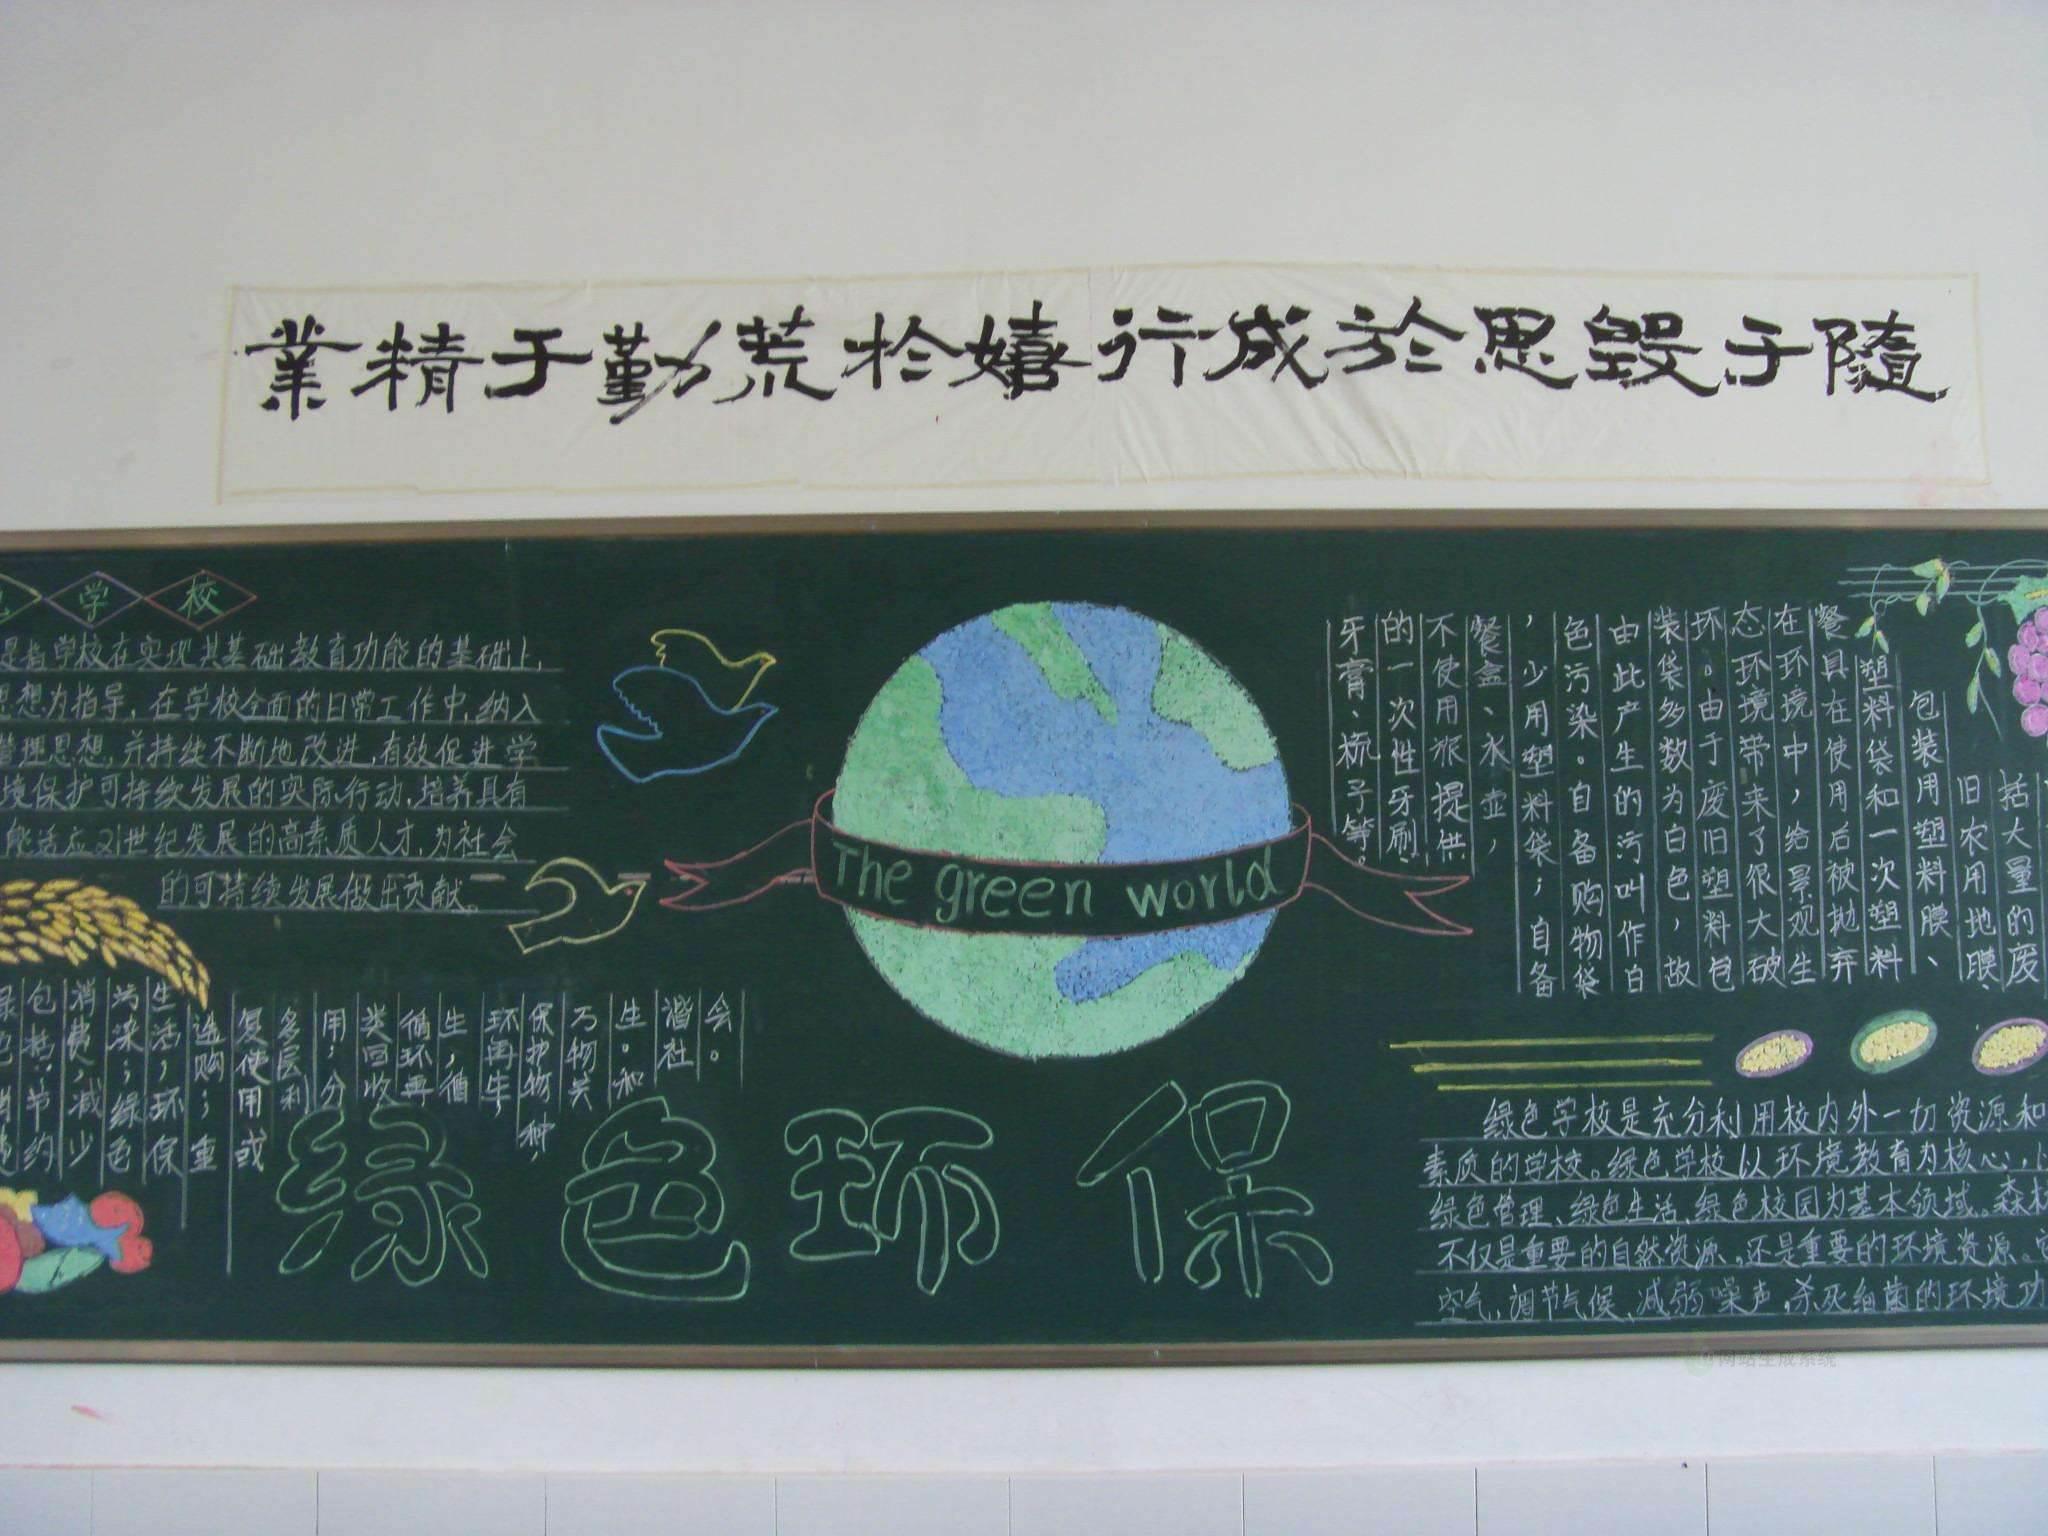 業精于勤荒於嬉行成於思毁于隨
学校
是指学校在实现其基础教育功能的基础上,
思想为指导,在学校全面的日常工作中,纳入
管理思想,并持续不断地改进,有效促进学
境保护可持续发展的实际行动,培养具有
能适应21世纪发展的高素质人才,为社会
的可持续发展做出贡献。
The green world
会。
谐社
生。和
万物共
保护物种,
环再生,
生,循
循环再
类回收
用;分
多层利
复使用或
选购;重
生活,环保
污染;绿色
消费,减少
包括:节约
绿色环保
括大量的废
旧农用地膜、
包装用塑料膜、
塑料袋和一次塑料
餐具在使用后被抛弃
在环境中,给景观生
态环境带来了很大破
坏。由于废旧塑料包
装袋多数为白色,故
由此产生的污叫作白
色污染。自备购物袋
,少用塑料袋;自备
餐盒、水壶,
不使用旅提供
的一次性牙刷、
牙膏、梳子等。
绿色学校是充分利用校内外一切资源和
素质的学校。绿色学校以环境教育为核心,
绿色管理、绿色生活、绿色校园为基本领域。森林
不仅是重要的自然资源,还是重要的环境资源。它
空气,调节气候、减弱噪声,杀死细菌的环境功
网站生成系统